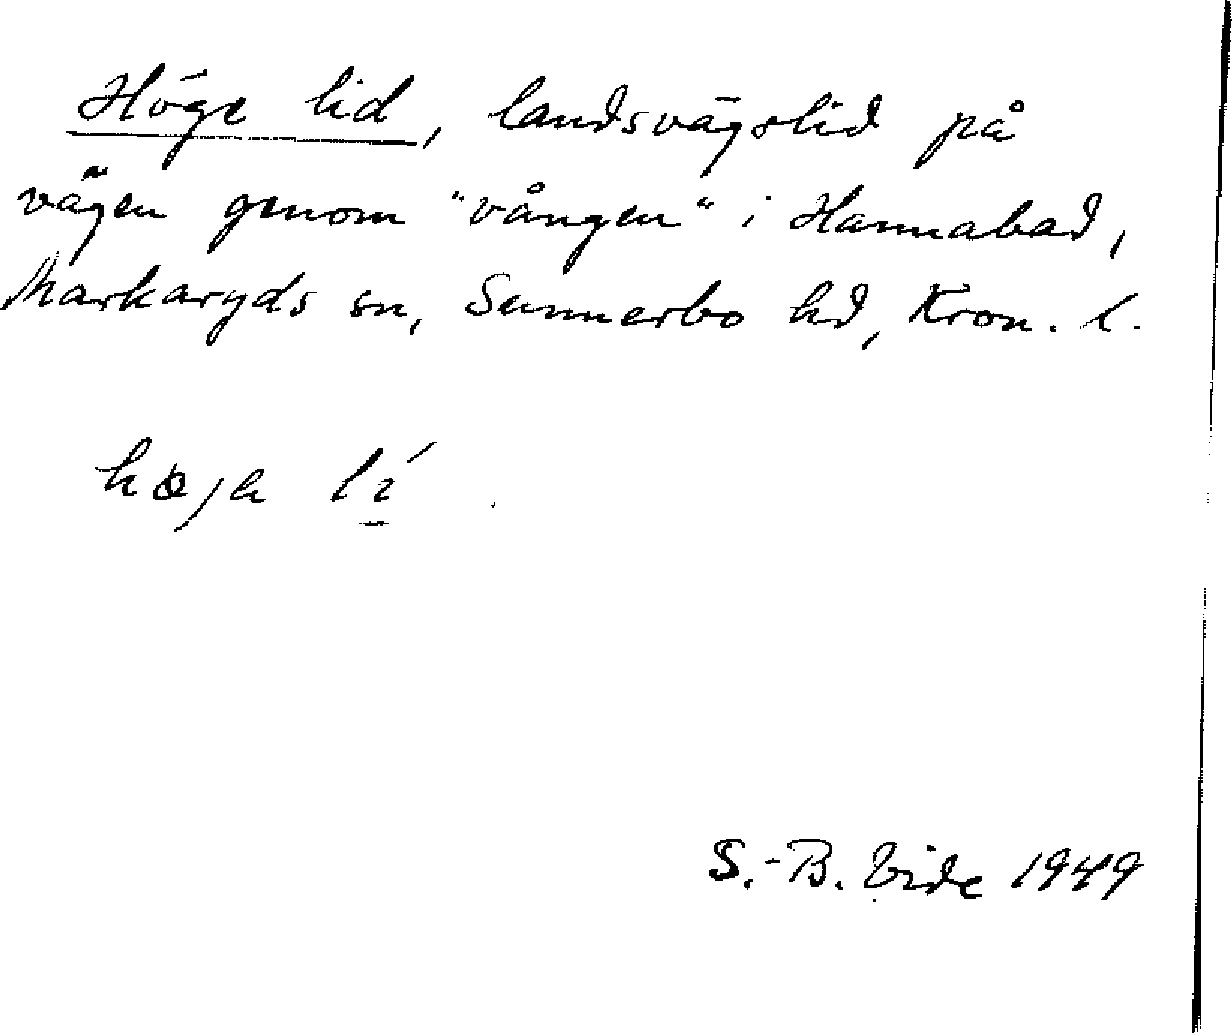 Höge lid, landsvägslid på
vägen genom "vången" i Hannabad,
Markaryds sn, Sunnerbo hd, Kron. l.
høja lí
S.-B. Vide 1949